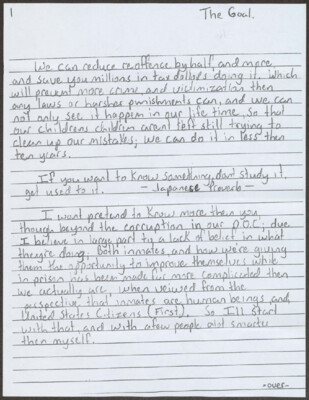 1
The Goal.
We can reduce reoffence by half, and more,
and save you millions in tax dollars doing it. Which
will prevent more crime, and victimization then
any laws or harsher punishments can, and we can
not only see it happen in our life time, so that
our childrens children arent left still trying to
clean up our mistakes, we can do it in less then
ten years.
If you want to know something, dont study it,
get used to it. - Japanese Proverb -
I wont pretend to know more then you
though beyond the corruption in our D.O.C.; due
I believe in large part to a lack of belief in what
they're doing, both inmates, and how we're giving
them the opportunity to improve themselves while
in prison has been made far more complicated then
we actually are, when veiwed from the
prospective that inmates are human beings and
United States Citizens (First). So I'll start
with that, and with a few people alot smarter
then myself.
-over-